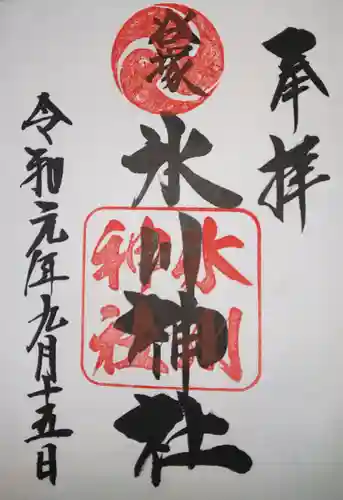 奉拝
登塚
氷川神社
氷川神社
令和元年九月十五日